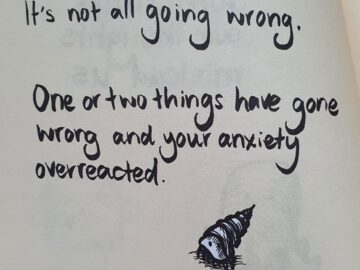 It's not all going wrong.
One or two things have gone
wrong and your anxiety
overreacted.